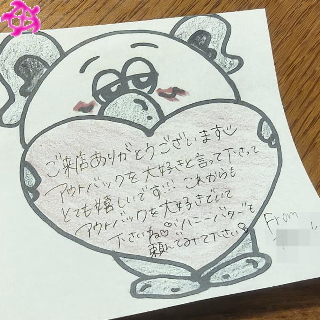 ご来店ありがとうございます
アウトバックを大好きと言って下さって
とても嬉しいです!!! これからも
アウトバックを大好きでいて
下さいね ハニーバターも
頼んでみて下さい
From